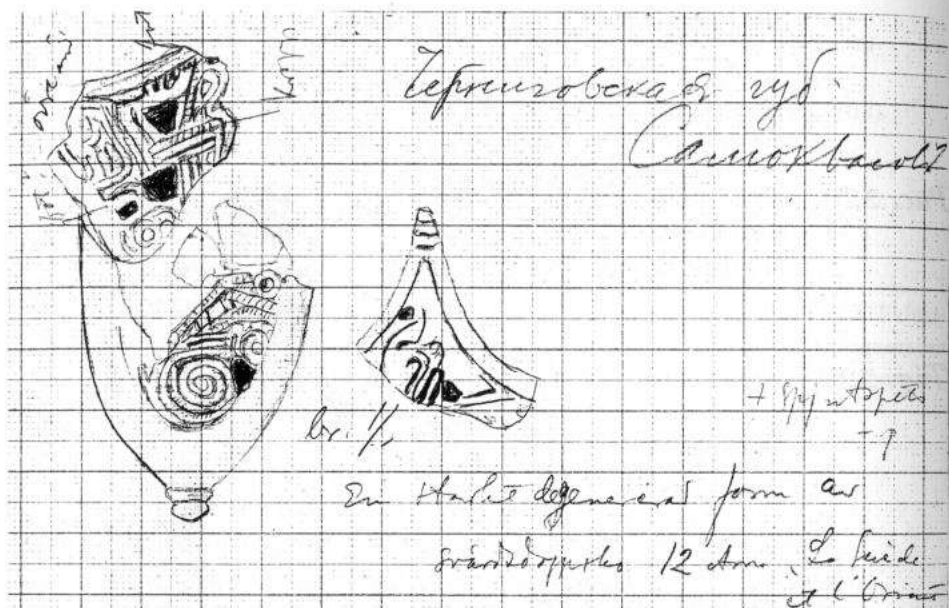 Черниговская губ.
Самоквасовъ
br. 1/1
+ spjutspets
En starkt degenererad form av
svärdsdoppsko 12 Arne, La Suède
et l'Orient